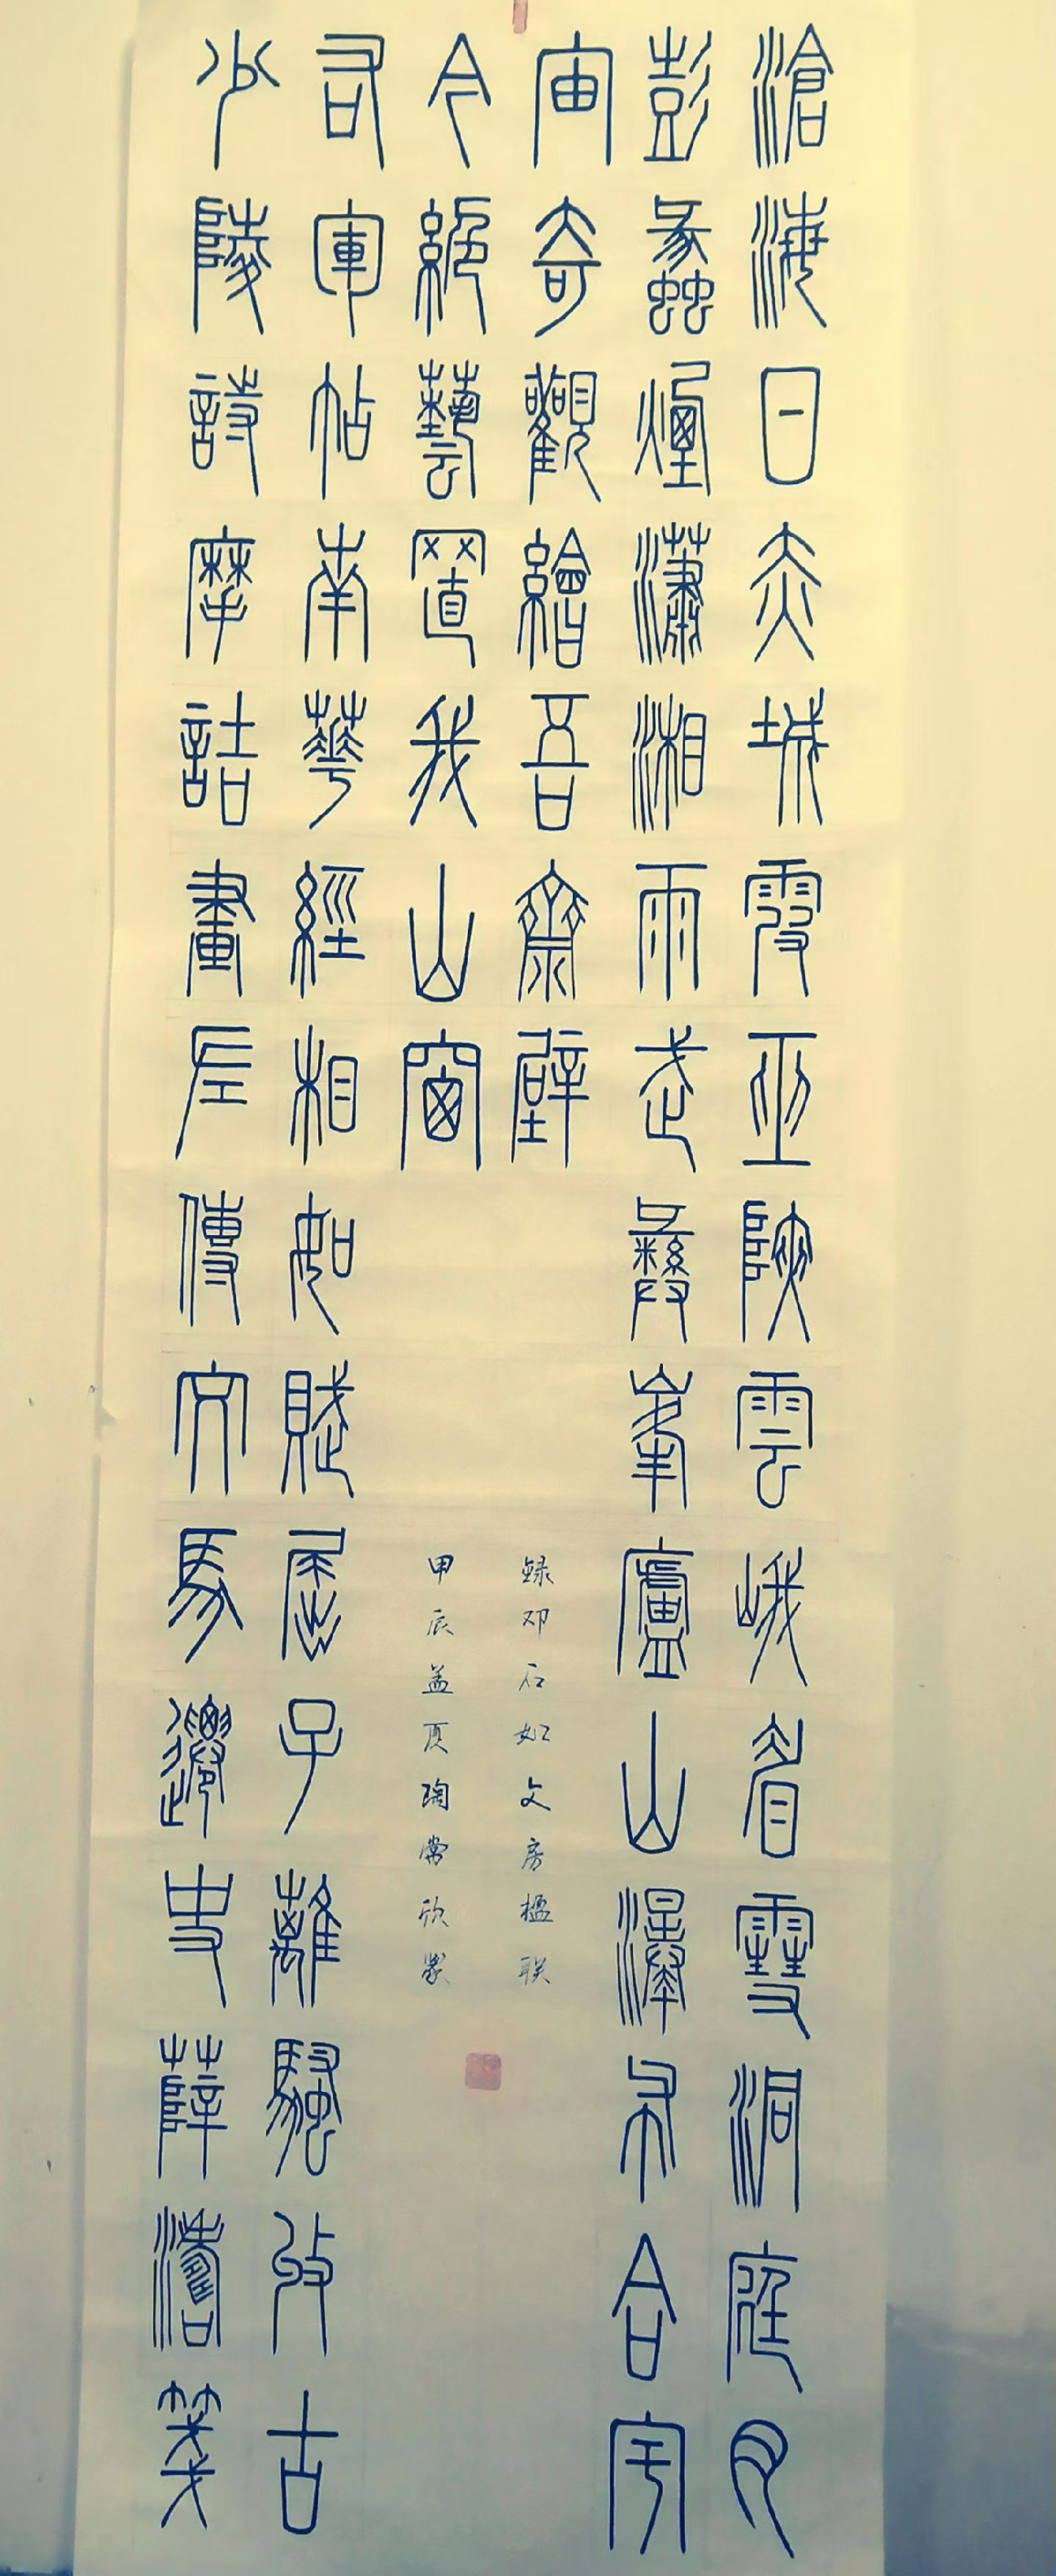 滄海日赤城霞巫陜雲峨眉雪洞庭月
彭蠡煙瀟湘雨武彝峯廬山瀑布合宇
宙奇觀繪吾齋壁
少陵詩摩詰畫左傳文馬遷史薛濤箋
右軍帖南華經相如賦屈子離騷收古
今絕藝置我山窗
録邓石如文房楹联
甲辰孟夏陶常欣篆